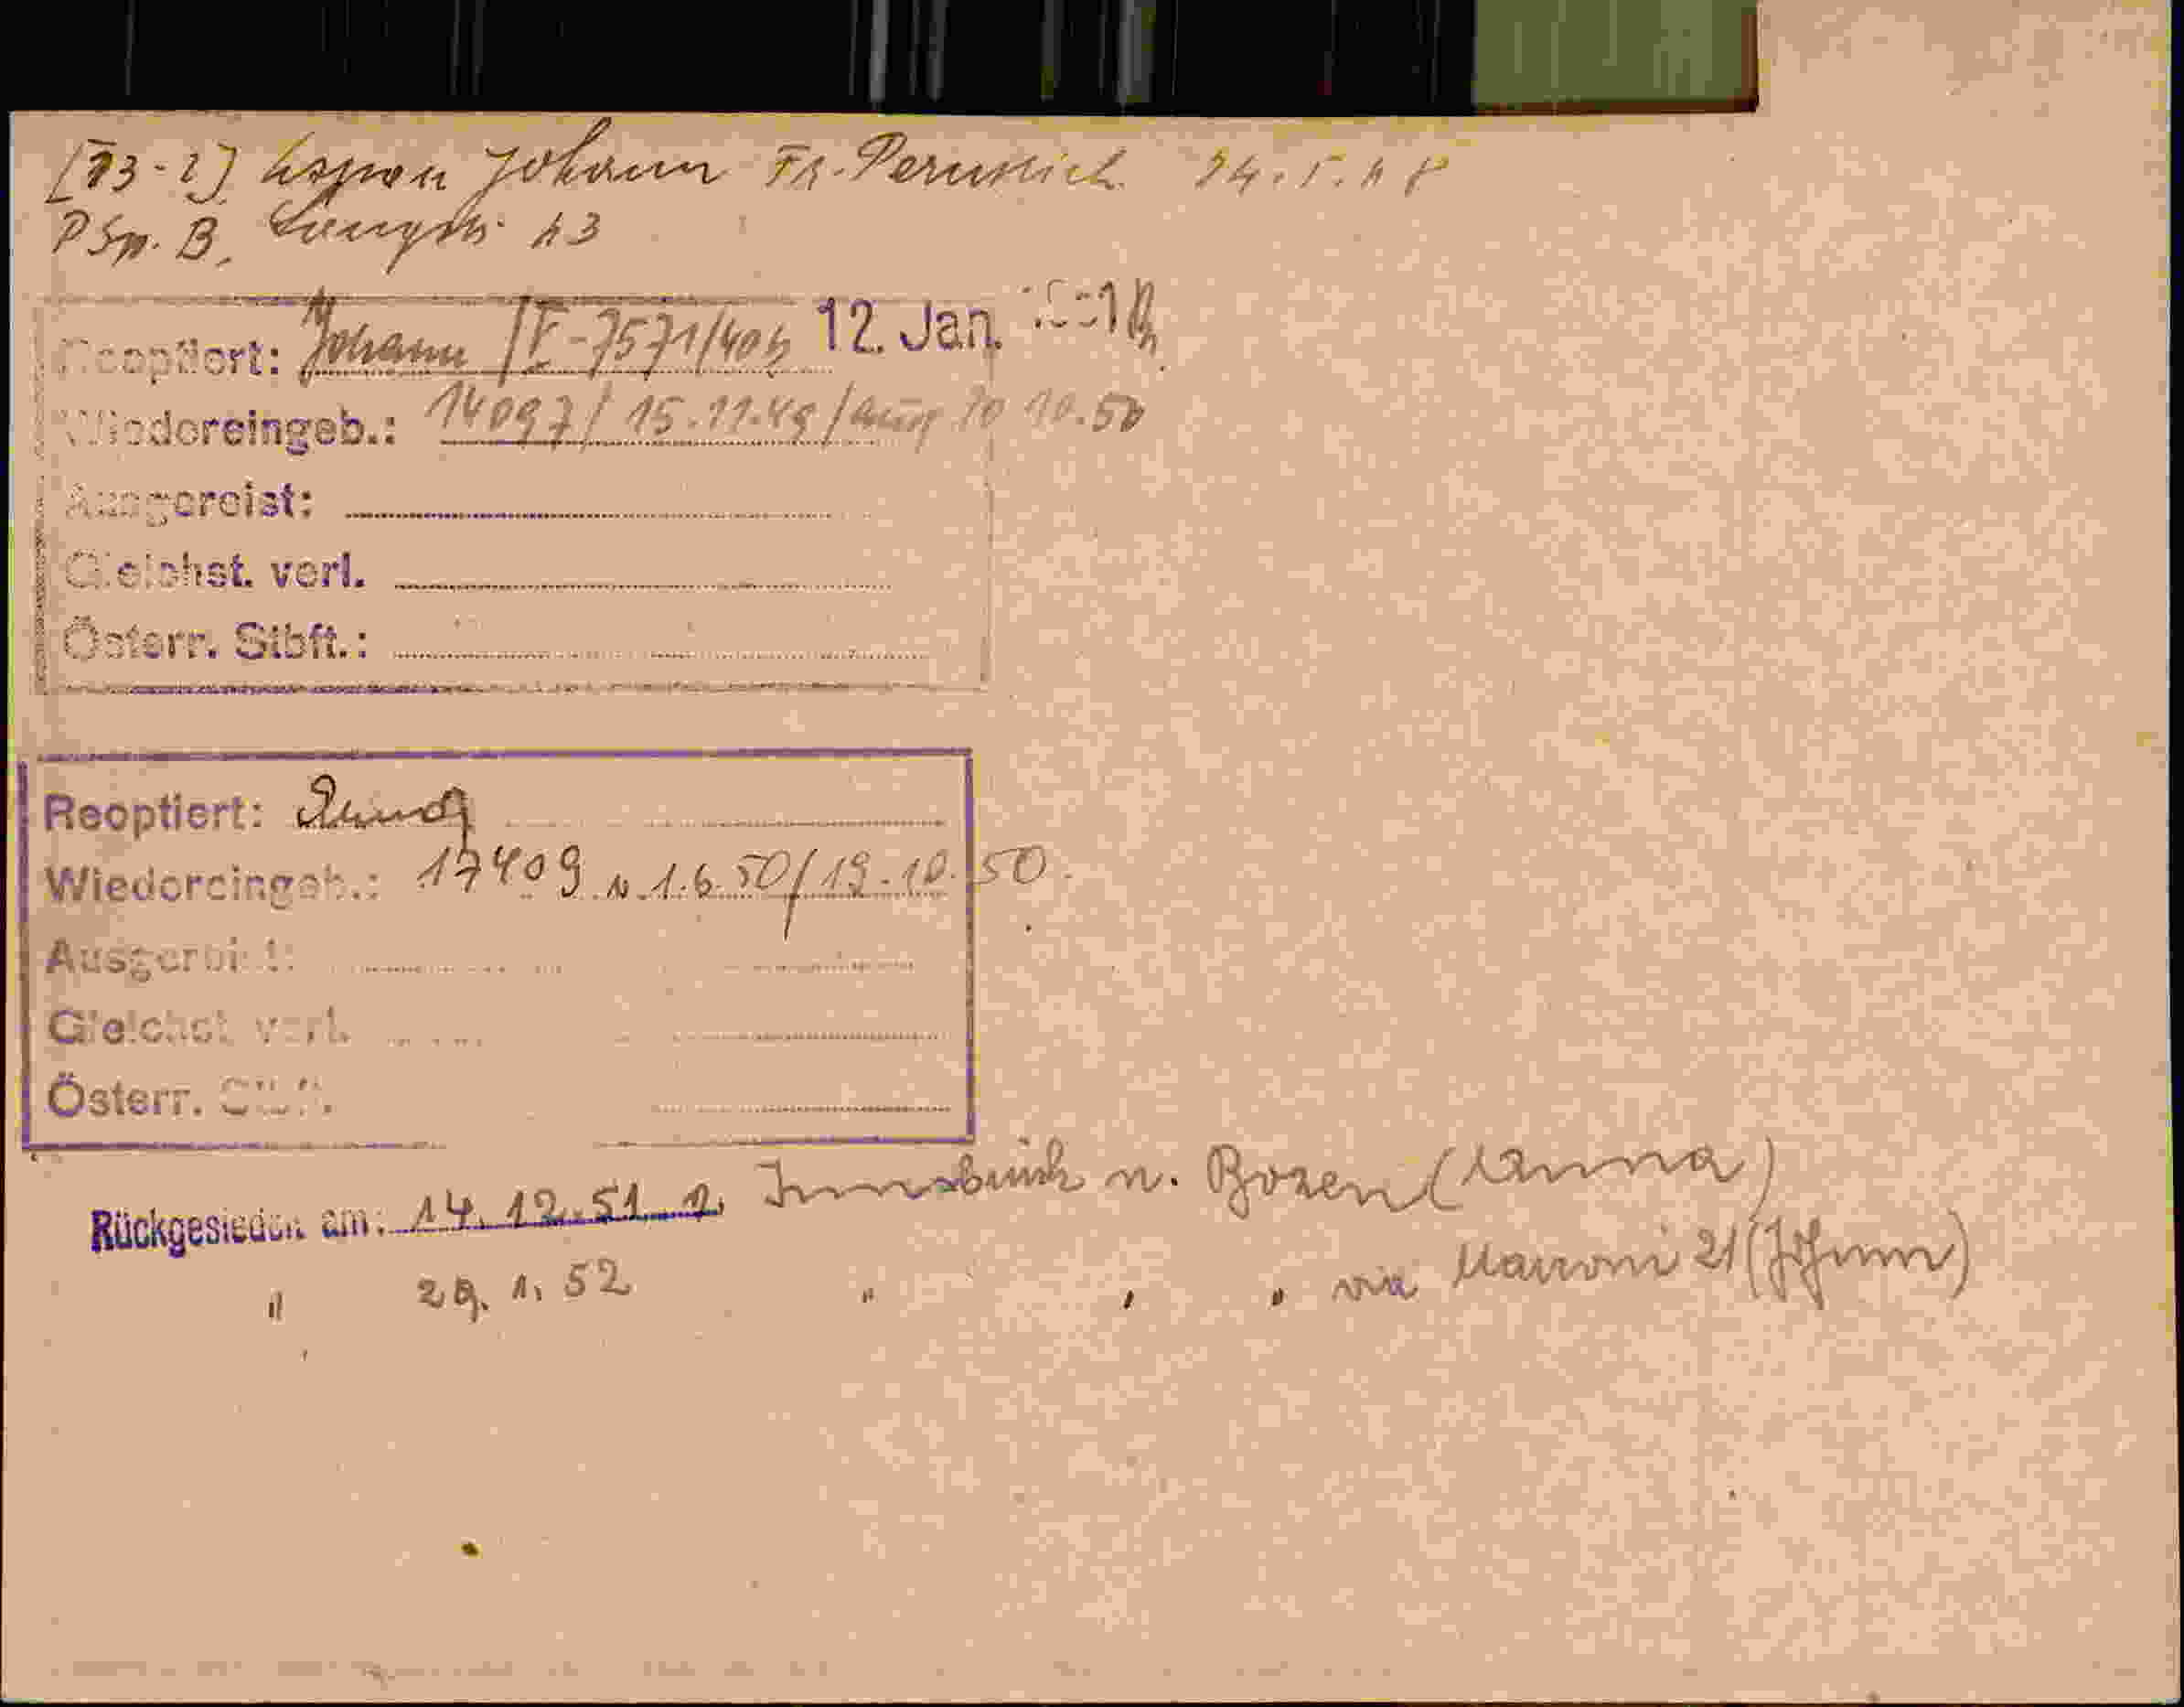 [13-2] Johann Fr. 24.5.48
P Sp. B, 43
Reoptiert: Johann 12. Jan.
Wiedereingeb.: 14097/ 15.11.49/ 10.50
Ausgereist:
Gleichst. verl.
Österr. Stbft.:
Reoptiert:
Wiedereingeb.: 17409 v. 1.6.50/19.10.50.
Ausgereist:
Gleichst. verl.
Österr. Stbft.:
Rückgesiedelt am: 14.12.51 v. Innsbruck n. Bozen (Anna)
" 29.1.52 " " " via Manzoni 21 (Johann)